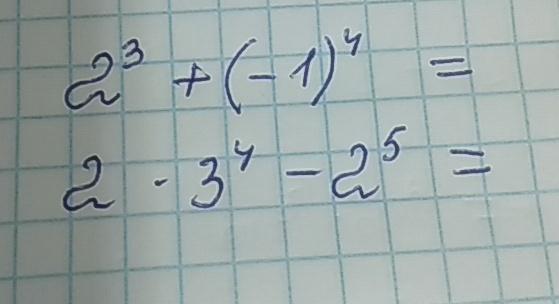 2³ + (-1)⁴ =
2 · 3⁴ - 2⁵ =